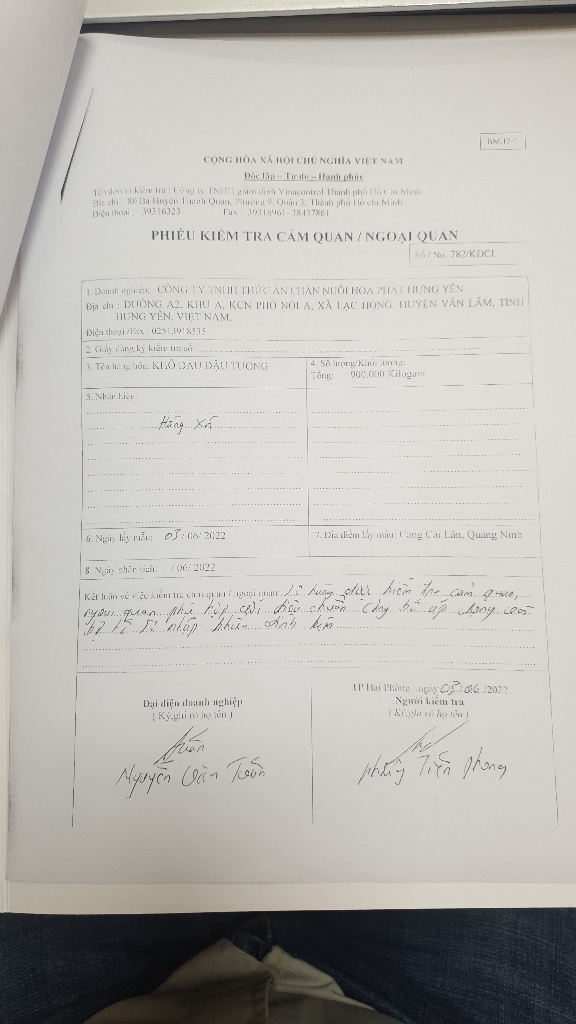 BM.15-1
CỘNG HÒA XÃ HỘI CHỦ NGHĨA VIỆT NAM
Độc lập – Tự do – Hạnh phúc
Tên đơn vị kiểm tra : Công ty TNHH giám định Vinacontrol Thành phố Hồ Chí Minh
Địa chỉ : 80 Bà Huyện Thanh Quan, Phường 9, Quận 3, Thành phố Hồ chí Minh
Điện thoại : 39316323 Fax : 39316961- 38437861
PHIẾU KIỂM TRA CẢM QUAN / NGOẠI QUAN
Số / No: 782/KĐCL
1. Doanh nghiệp: CÔNG TY TNHH THỨC ĂN CHĂN NUÔI HÒA PHÁT HƯNG YÊN
Địa chỉ : ĐƯỜNG A2, KHU A, KCN PHỐ NỐI A, XÃ LẠC HỒNG, HUYỆN VĂN LÂM, TỈNH
HƯNG YÊN, VIỆT NAM.
Điện thoại /Fax : 02513918535
2. Giấy đăng ký kiểm tra số
3. Tên hàng hóa: KHÔ DẦU ĐẬU TƯƠNG
4. Số lượng/Khối lượng:
Tổng: 900,000 Kilogam
5. Nhãn hiệu:
Hàng xá
6. Ngày lấy mẫu: 03 / 06/ 2022
7. Địa điểm lấy mẫu: Cảng Cái Lân, Quảng Ninh
8 Ngày phân tích: / 06/ 2022
Kết luận về việc kiểm tra cảm quan / ngoại quan: Lô hàng được kiểm tra cảm quan,
ngoại quan phù hợp với tiêu chuẩn công bố áp dụng
nhập khẩu đính kèm
TP Hải Phòng, ngày 03/ 06 /2022
Đại diện doanh nghiệp
( Ký,ghi rõ họ tên )
Người kiểm tra
( Ký,ghi rõ họ tên )
Nguyễn Văn Tuấn
Phùng Tiến Phong